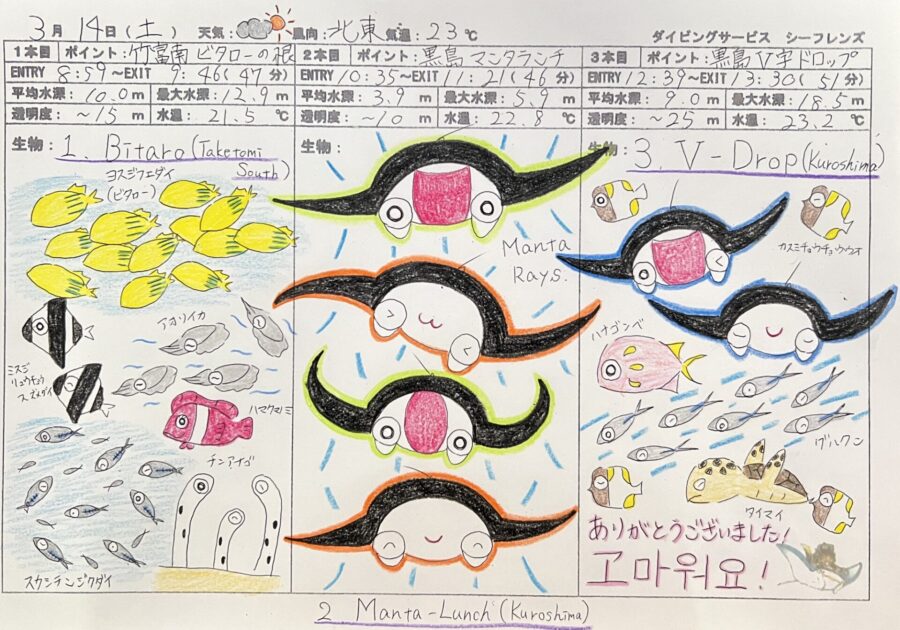 3月 14日(土) 天気: 風向: 北東 気温: 23℃ ダイビングサービス シーフレンズ
1本目 ポイント: 竹富南 ビタローの根
ENTRY 8:59 ~EXIT 9:46(47分)
平均水深: 10.0m 最大水深: 12.9m
透明度: ~15m 水温: 21.5℃
生物: 1. Bitaro (Taketomi South)
ヨスジフエダイ
(ビタロー)
アオリイカ
ミスジ
リュウキュウ
スズメダイ
ハマクマノミ
チンアナゴ
スカシテンジクダイ
2本目 ポイント: 黒島 マンタランチ
ENTRY 10:35~EXIT 11:21(46分)
平均水深: 3.9m 最大水深: 5.9m
透明度: ~10m 水温: 22.8℃
生物:
Manta
Rays.
2 Manta-Lunch (Kuroshima)
3本目 ポイント: 黒島V字ドロップ
ENTRY 12:39~EXIT 13:30(51分)
平均水深: 9.0m 最大水深: 18.5m
透明度: ~25m 水温: 23.2℃
生物: 3. V-Drop (Kuroshima)
カスミチョウチョウウオ
ハナゴンベ
グルクン
タイマイ
ありがとうございました!
고마워요!